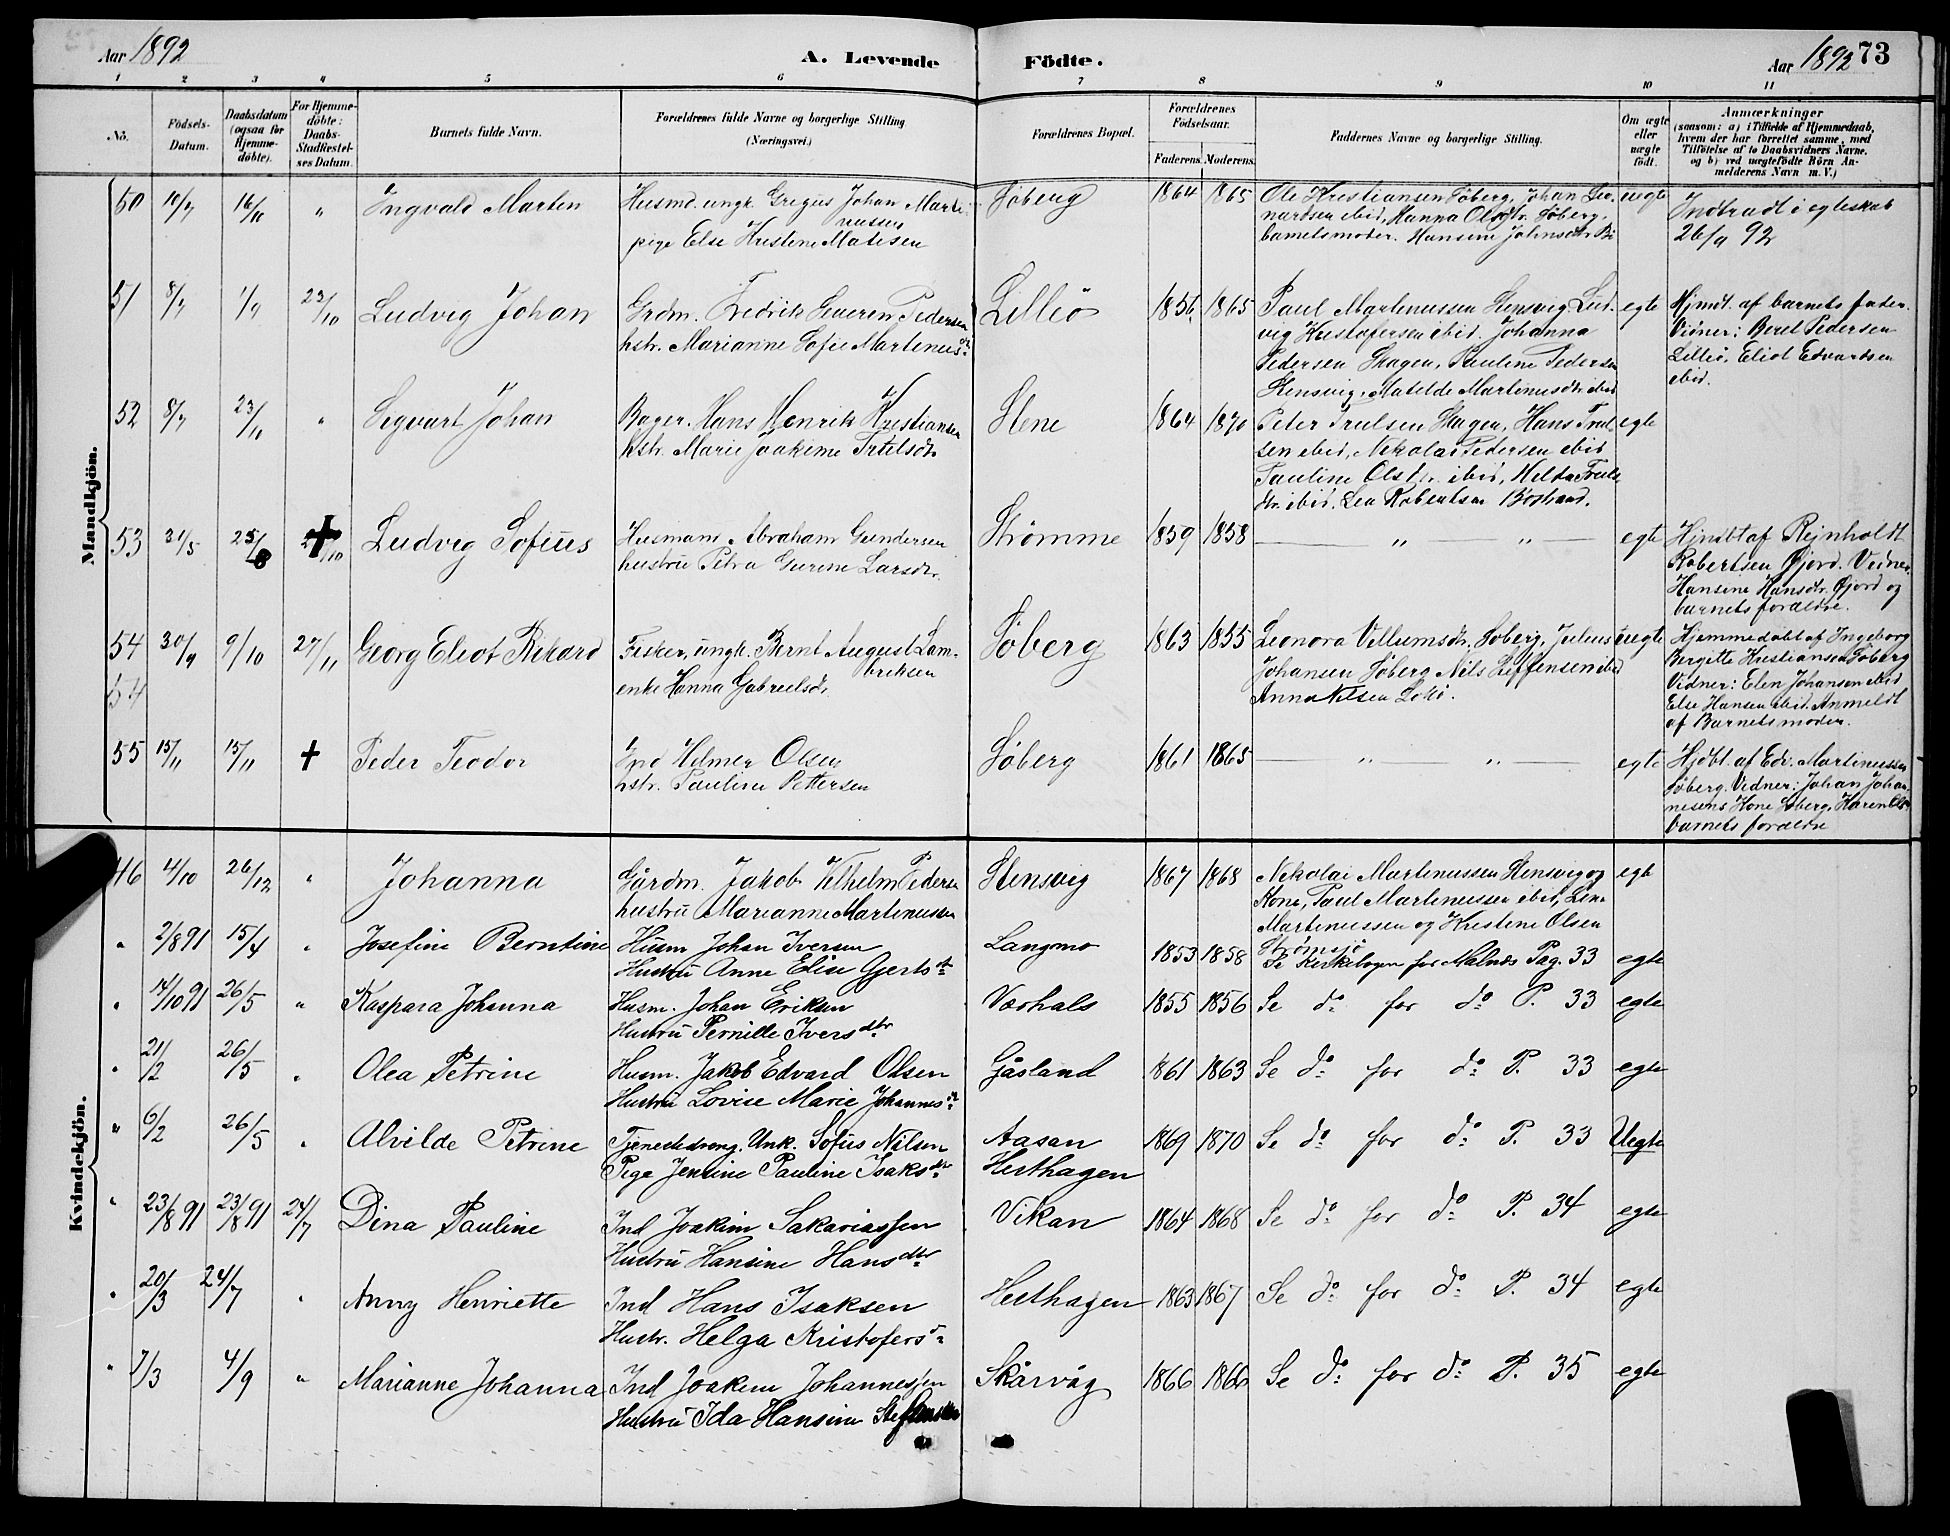 Aar 1892
A. Levende Födte.
Aar 1892 73
1 2 3 4 5 6 7 8 9 10 11
Nô.
Födsels-Datum.
Daabsdatum (ogsaa for Hjemme-döbte).
For Hjemme-döbte: Daabs-Stadfæstel-ses Datum.
Barnets fulde Navn.
Forældrenes fulde Navne og borgerlige Stilling (Næringsvei.)
Forældrenes Bopæl.
Forældrenes Födselsaar.
Faderens. Moderens.
Faddernes Navne og borgerlige Stilling.
Om ægte eller uægte födt.
Anmærkninger
(saasom: a) i Tilfælde af Hjemmedaab,
hvem der har forrettet samme, med
Tilföielse af to Daabsvidners Navne.
og b) ved uægtefödte Börn An-
melderens Navn m. V.)
Mandkjön.
50 10/7 16/11 " Ingvald Martin
Husmd. ungk. Gregus Johan Marti-
nussen
pige Else Kristine Matisen
Søberg 1864 1865
Ole Kristiansen Søberg, Johan Leo-
nardsen ibid, Hanna Olsdtr. Søberg,
barnets moder. Hansine Johnsdtr.
uegte
Indtradt i egteskab
26/9 92
51 8/7 1/9 23/10 Ludvig Johan
Grdm. Fredrik Severin Pedersen
hstr. Marianne Sofie Martinusdr.
Lilleö 1856 1865
Paul Martinussen Stensvig, Lud-
vig Kristofersen ibid. Johanna
Pedersen Hagen, Pauline Pedersen
Stensvig, Matilde Martinusdtr. ibid
egte
Hjmdt. af barnets fader.
Vidner: Beret Pedersen
Lilleö, Eliot Edvardsen
ibid.
52 8/7 23/11 " Segvart Johan
Bager. Hans Henrik Kristiansen
hstr. Marie Joakime Trulsdtr
Stene 1864 1870
Peter Trulsen Hagen, Hans Trul-
sen ibid, Nikolai Pedersen ibid
Pauline Olsdtr. ibid, Hilda Truls
dtr. ibid. Lea Robertsen
egte
53 31/5 25/8 /10 Ludvig Sofius
Husmann Abraham Gundersen
hustru Petra Gurine Larsdtr.
Strømme 1859 1858
" "
egte
Hjmdbt af Rejnholdt
Robertsen Gjord. Vidner
Hansine Hansdtr. Gjord og
barnets foraldre.
54 30/9 9/10 27/11 Georg Eliot Rikard
54
Fisker, ungk. Bernt August Lam-
briksen
enke Hanna Gabrielsdr.
Søberg 1863 1855
Leonora Villumsdtr. Søberg, Julius
Johansen Søberg Nils Steffensen ibid
Anna Nilsen
uegte
Hjemmedøbt af Ingeborg
Bergitte Kristiansen Søberg
Vidner: Elen Johansen ibid
Else Hansen ibid. Anmeldt
af Barnets moder.
55 15/11 15/11 + Peder Teodor
Ind Hilmer Olsen
hstr. Pauline Pettersen
Søberg 1861 1865
" "
egte
Hjdbt. af Edv. Martinussen
Søberg. Vidner: Johan Johan-
nesens Kone Søberg, Karen Ols
barnets foraldre
Kvindekjön.
46 4/10 26/12 " Johanna
Gårdm. Jakob Vilhelm Pedersen
hustru Marianne Martinussen
Stensvig 1867 1868
Nikolai Martinussen Stensvig og
Kone, Paul Martinussen ibid, Lina
Martinussen og Kristine Olsen
Strømsjø
egt
" 2/8 91 15/4 " Josefine Berntine
Husm Johan Iversen
Hustru Anne Elise Gjertsdtr
Langmo 1853 1858
Se Kirkebogen for Malnes Pag. 33 egte
" 14/10 91 26/5 " Kaspara Johanna
Husm. Johan Eriksen
Hustru Pernille Iversdtr
Vorhals 1855 1856 Se do for do P. 33 egte
" 21/2 26/5 " Olea Petrine
Husm. Jakob Edvard Olsen
Hustru Lovise Marie Johannesdr
Gåsland 1861 1863 Se do for do P. 33 egte
" 6/2 26/5 " Alvilde Petrine
Tjenestedreng, Unk. Sofus Nilsen
Pige Jensine Pauline Isaksdtr
Aasan
Hesthagen
1869 1870 Se do for do P. 33 Uegte
" 23/8 91 23/8 91 24/7 Dina Pauline
Ind Joakim Sakariassen
Hustru Hansine Hansdtr
Vikan 1864 1868 Se do for do P. 34 egte
" 20/3 24/7 " Anny Henriette
Ind Hans Isaksen
Hustr. Helga Kristofersdr
Hesthagen 1863 1867 Se do for do P. 34 egte
" 7/3 4/9 " Marianne Johanna
Ind Joakim Johannessen
Hustru Ida Hansine Steffensdtr
Skårvåg 1866 1866 Se do for do P. 35 egte